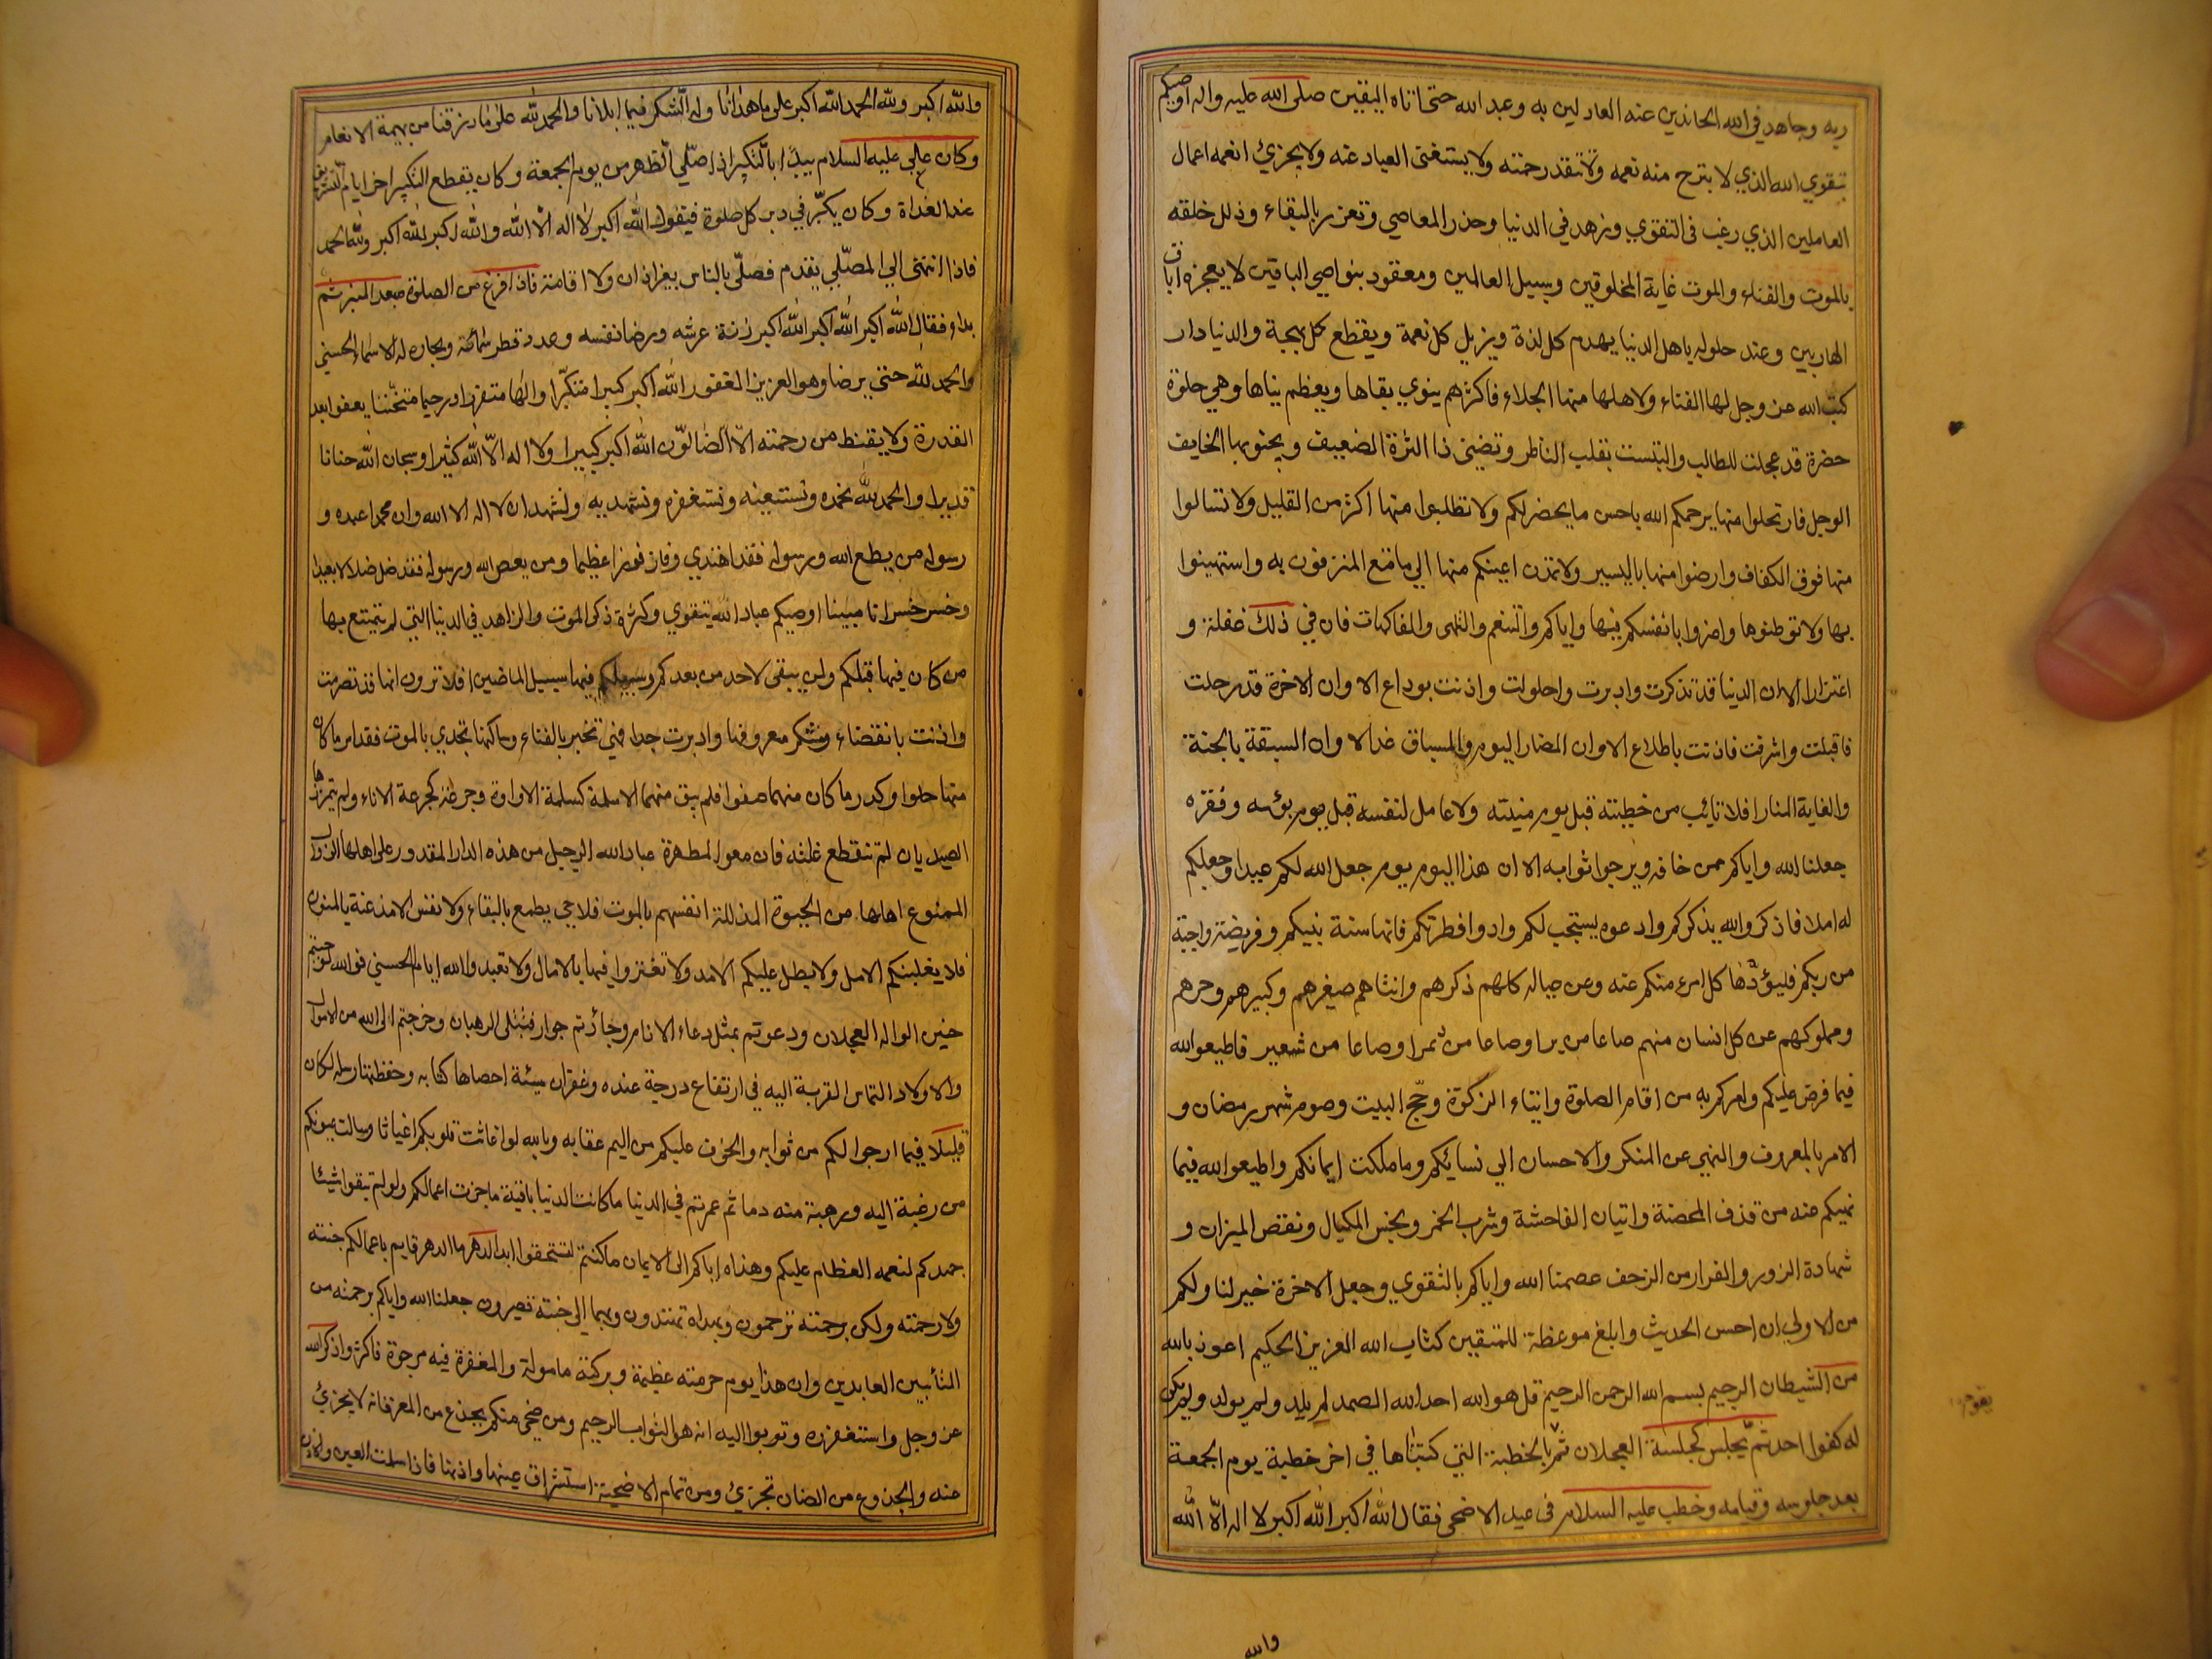 ربه وجاهد في الله الحاندين عنه العادلين به وعبد الله حتى اتاه اليقين صلى الله عليه واله اوصيكم
بتقوي الله الذي لا يترح منه نعمه ولا تنقد رحمته ولا يستغنى العباد عنه ولا يجزئ انعمه اعمال
العاملين الذي رغب في التقوي وزهد في الدنيا وحذر المعاصي وتعزز بالبقاء وذلل خلقه
بالموت والفناء والموت غاية المخلوقين وسبيل العالمين ومعقود بنواصي الباقين لا يعجزه اباق
الهاربين وعند حلوله ياهل الدنيا يهدم كل لذة ويزيل كل نعمة ويقطع كل بهجة والدنيا دار
كتب الله عز وجل لها الفناء ولاهلها منها الجلاء فاكثرهم ينوي بقاها ويعظم بناها وهي حلوة
حضرة قد عجلت للطالب والتبست بقلب الناظر وتضنى ذا الثرة الضعيف ويحتويها الخايف
الوجل فارتحلوا منها يرحمكم الله باحسن ما يحضركم ولا تطلبوا منها اكثر من القليل ولا تسالوا
منها فوق الكفاف وارضوا منها باليسير ولا تمدن اعينكم منها الي ما متع المترفون به واستهينوا
بها ولا توطنوها واضروا بانفسكم فيها واياكم والتنعم والتلهى والفاكهات فان في ذلك غفلة و
اغترارا الا ان الدنيا قد تذكرت وادبرت واحلولت واذنت بوداع الا وان الاخرة قد رحلت
فاقبلت واشرفت فاذنت باطلاع الا وان المضمار اليوم والسباق غدا الا وان السبقة بالجنة
والغاية النار افلا تايب من خطيئته قبل يوم منيته ولا عامل لنفسه قبل يوم بؤسه وفقره
جعلنا الله واياكم ممن خافه ويرجوا ثوابه الا ان هذا اليوم يوم جعل الله لكم عيدا وجعلكم
له املا فاذكروا الله يذكركم وادعوه يستجب لكم وادوا فطرتكم فانها سنة نبيكم وفريضة واجبة
من ربكم فليؤدها كل امرء منكم عنه وعن عياله كلهم ذكرهم وانثاهم صغيرهم وكبيرهم وحرهم
ومملوكهم عن كل انسان منهم صاعا من بر او صاعا من تمر او صاعا من شعير فاطيعوا الله
فيما فرض عليكم وامركم به من اقام الصلوة وايتاء الزكوة وحج البيت وصوم شهر رمضان و
الامر بالمعروف والنهي عن المنكر والاحسان الي نسائكم وما ملكت ايمانكم واطيعوا الله فيما
نهيكم عنه من قذف المحصنة واتيان الفاحشة وشرب الخمر وبخس المكيال ونقص الميزان و
شهادة الزور والفرار من الزحف عصمنا الله واياكم بالتقوي وجعل الاخرة خير لنا ولكم
من الاولي ان احسن الحديث وابلغ موعظة للمتقين كتاب الله العزيز الحكيم اعوذ بالله
من الشيطان الرجيم بسم الله الرحمن الرحيم قل هو الله احد الله الصمد لم يلد ولم يولد ولم يكن
له كفوا احد ثم يجلس كجلسة العجلان ثم بالخطبة التي كتبناها في اخر خطبة يوم الجمعة
بعد جلوسه وقيامه وخطب عليه السلام في عيد الاضحى فقال الله اكبر الله اكبر لا اله الا الله
والله
والله اكبر ولله الحمد الله اكبر على ما هدانا وله الشكر فيما ابلانا والحمد لله على ما رزقنا من بهيمة الانعام
وكان علي عليه السلام يبدا بالتكبير اذا صلي الظهر من يوم الجمعة وكان يقطع التكبير اخر ايام التشريق
عند الغداة وكان يكبر في دبر كل صلوة فيقول الله اكبر لا اله الا الله والله اكبر الله اكبر ولله الحمد
فاذا انتهى الي المصلي يقدم فصلى بالناس بغير اذان ولا اقامة فاذا فرغ من الصلوة صعد المنبر ثم
بدا وفقال الله اكبر الله اكبر الله اكبر زنة عرشه ورضا نفسه وعدد قطر سمائه وبحاره له الاسماء الحسني
والحمد لله حتي يرضا وهو العزيز الغفور الله اكبر كبيرا متكبرا والها متعززا ورحيما متحننا يعفوا بعد
القدرة ولا يقنط من رحمته الا الضالون الله اكبر كبيرا ولا اله الا الله كثيرا وسبحان الله حنانا
قديرا والحمد لله نحمده ونستعينه ونستغفره ونشهد به ونشهد ان لا اله الا الله وان محمدا عبده و
رسوله من يطع الله ورسوله فقد اهتدي وفاز فوزا عظيما ومن يعص الله ورسوله فقد ضل ضلالا بعيدا
وخسر خسرانا مبينا اوصيكم عباد الله بتقوي وكثرة ذكر الموت والزاهد في الدنيا التي لم يتمتع بها
من كان فيها قبلكم ولن يبقى لاحد من بعدكم وسبيلكم فيها سبيل الماضين افلا ترون انها قد تصرمت
واذنت بانقضاء وتنكر معروفها وادبرت جدا فهي تخبر بالفناء وساكنها تحدي بالموت فقد امر ما كان
منها حلوا وكدر ما كان منها صفوا فلم يبق منها الا سملة كسملة الاداوة وجرعة كجرعة الاناء ولم يتمززها
الصديان لم تنقطع غلته فان معوا لمطهرة عباد الله الرحيل من هذه الدار المقدور علي اهلها الزوال
الممنوع اهلها من الحيوة المذللة انفسهم بالموت فلا حي يطمع بالبقاء ولا نفس الا مذعنة بالمنون
فلا يغلبنكم الامل ولا يطل عليكم الامد ولا تغتروا فيها بالامال ولا تعبد والله ايام الحسني فوالله لو حننتم
حنين الواله العجلان ودعوتم بمثل دعاء الانام وجارتم جوار متبتلي الرهبان وخرجتم الي الله من الاموال
والاولاد التماس القربة اليه في ارتفاع درجة عنده وغفران سيئة احصاها كتابه وحفظتها رسله لكان
قليلا فيما ارجوا لكم من ثوابه والخوف عليكم من اليم عقابه وبالله لو انماثت قلوبكم انمياثا وسالت عيونكم
من رغبة اليه ورهبة منه دما ثم عمرتم في الدنيا ما كانت الدنيا باقية ما جزت اعمالكم ولو لم تبقوا شيئا
جهدكم لنعمه العظام عليكم وهداه اياكم الى الايمان ما كنتم لتستحقوا ابد الدهر ما الدهر قايم باعمالكم جنته
ولا رحمته ولكن برحمته ترحمون وبهداه تهتدون وبهما الي جنته تصيرون جعلنا الله واياكم برحمته من
التائبين العابدين وان هذا يوم حرمته عظيمة وبركته مامولة والمغفرة فيه مرجوة فاكثروا ذكر الله
عز وجل واستغفروه وتوبوا اليه انه هو التواب الرحيم ومن ضحى منكم بجذع من المعز فانه لا يجزئ
عنه والجذوع من الضان تجزئ ومن تمام الاضحية استشراف عينها واذنها فاذا سلمت العين والاذن